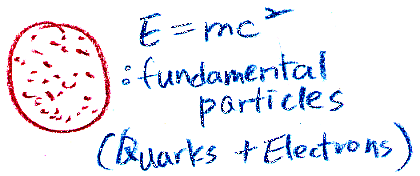 E = mc²
: fundamental
particles
(Quarks + Electrons)